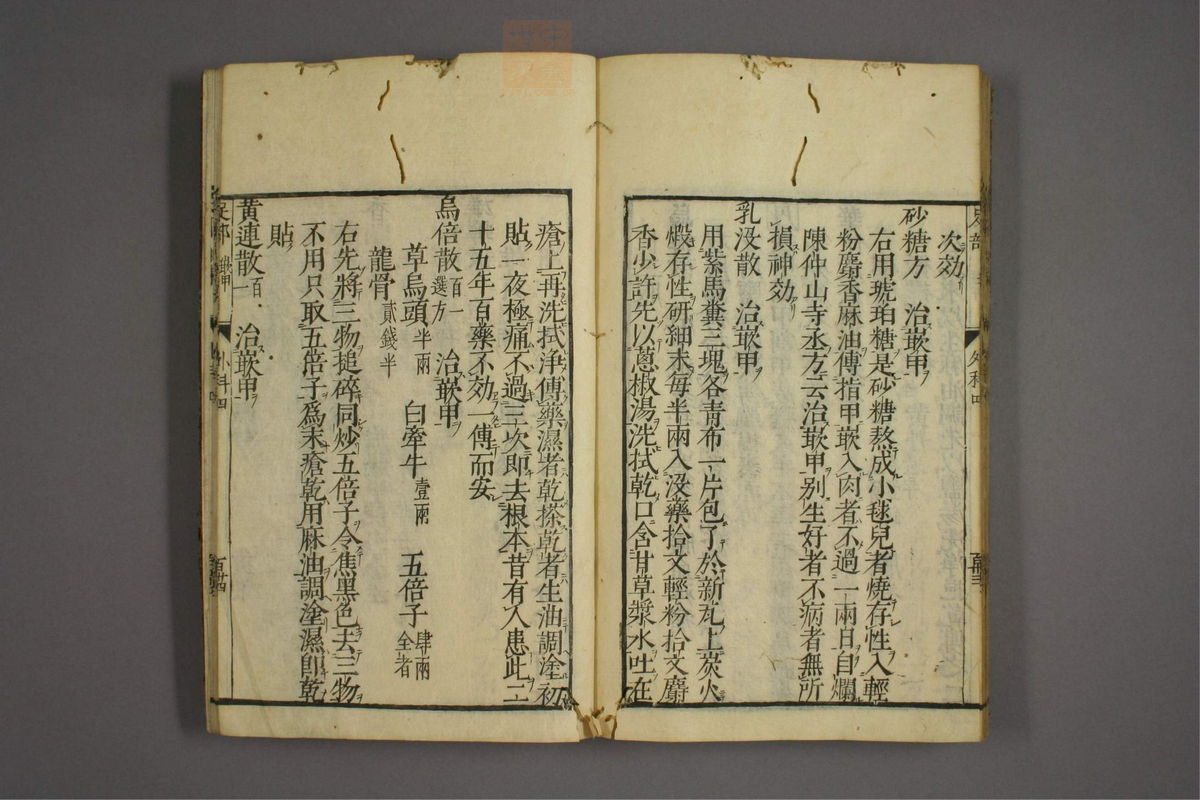 次効
砂糖方　治嵌甲
右用琥珀糖是砂糖熬成小毬兒者燒存性入輕
粉麝香麻油傅指甲嵌入肉者不過一兩日自爛
陳仲山寺丞方云治嵌甲别生好者不病者無所
損神効
乳没散　治嵌甲
用紫馬糞三塊各青布一片包了於新瓦上炭火
煅存性研細末毎半兩入没藥拾文輕粉拾文麝
香少許先以蔥椒湯洗拭乾口含甘草漿水吐在
瘡上再洗拭淨傅藥濕者乾搽乾者生油調塗初
貼一夜極痛不過三次即去根本昔有人患此二
十五年百藥不効一傅而安
烏倍散百一選方　治嵌甲
草烏頭半兩　白牽牛壹兩　五倍子肆兩全者
龍骨貳錢半
右先將三物搥碎同炒五倍子令焦黑色去三物
不用只取五倍子爲末瘡乾用麻油調塗濕即乾
貼
黄連散百一　治嵌甲